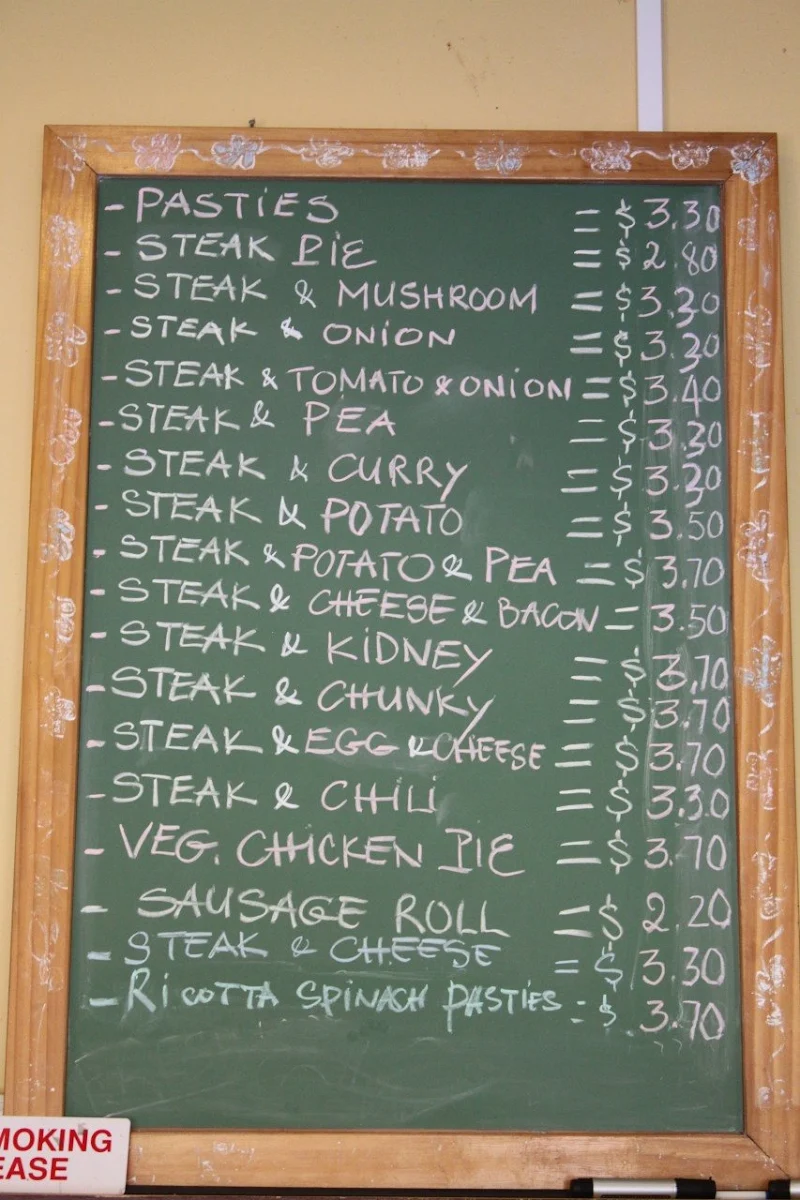 - PASTiES = $ 3.30
- STEAK PiE = $ 2.80
- STEAK & MUSHROOM = $ 3.30
- STEAK & ONiON = $ 3.30
- STEAK & TOMATO & ONiON = $ 3.40
- STEAK & PEA = $ 3.30
- STEAK & CURRY = $ 3.20
- STEAK & POTATO = $ 3.50
- STEAK & POTATO & PEA = $ 3.70
- STEAK & CHEESE & BACON = 3.50
- STEAK & KiDNEY = $ 3.70
- STEAK & CHUNKY = $ 3.70
- STEAK & EGG & CHEESE = $ 3.70
- STEAK & CHiLi = $ 3.30
- VEG. CHICKEN PIE = $ 3.70
- SAUSAGE ROLL = $ 2.20
- STEAK & CHEESE = $ 3.30
- RiCOTTA SPiNACH PASTiES = $ 3.70
MOKING
EASE